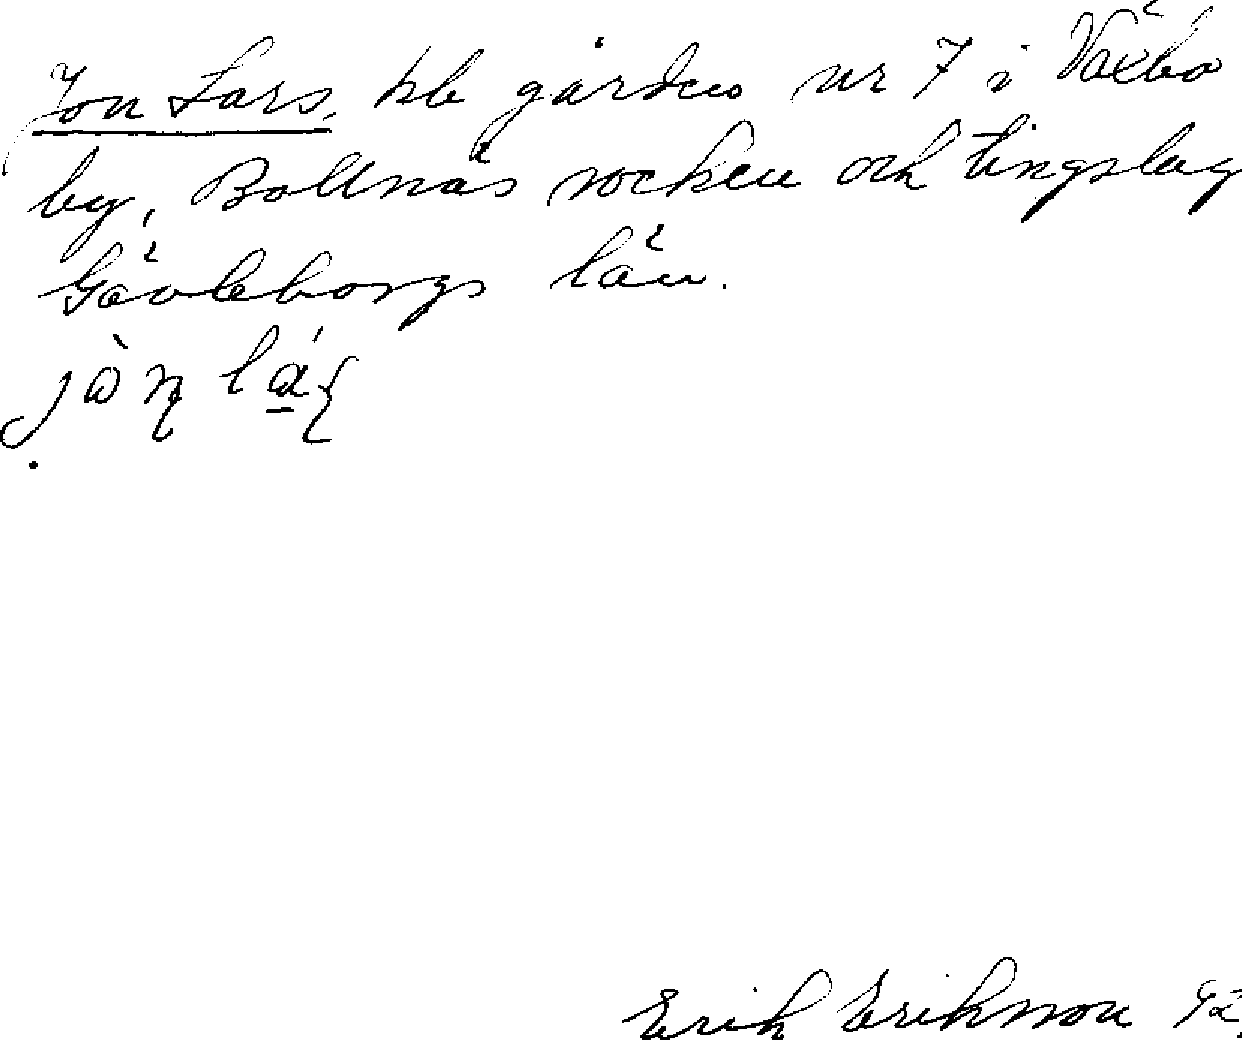 Jon Lars, kb gården nr 7 i Växbo
by, Bollnäs socken och tingslag
Gävleborgs län.
Erik Eriksson 92.